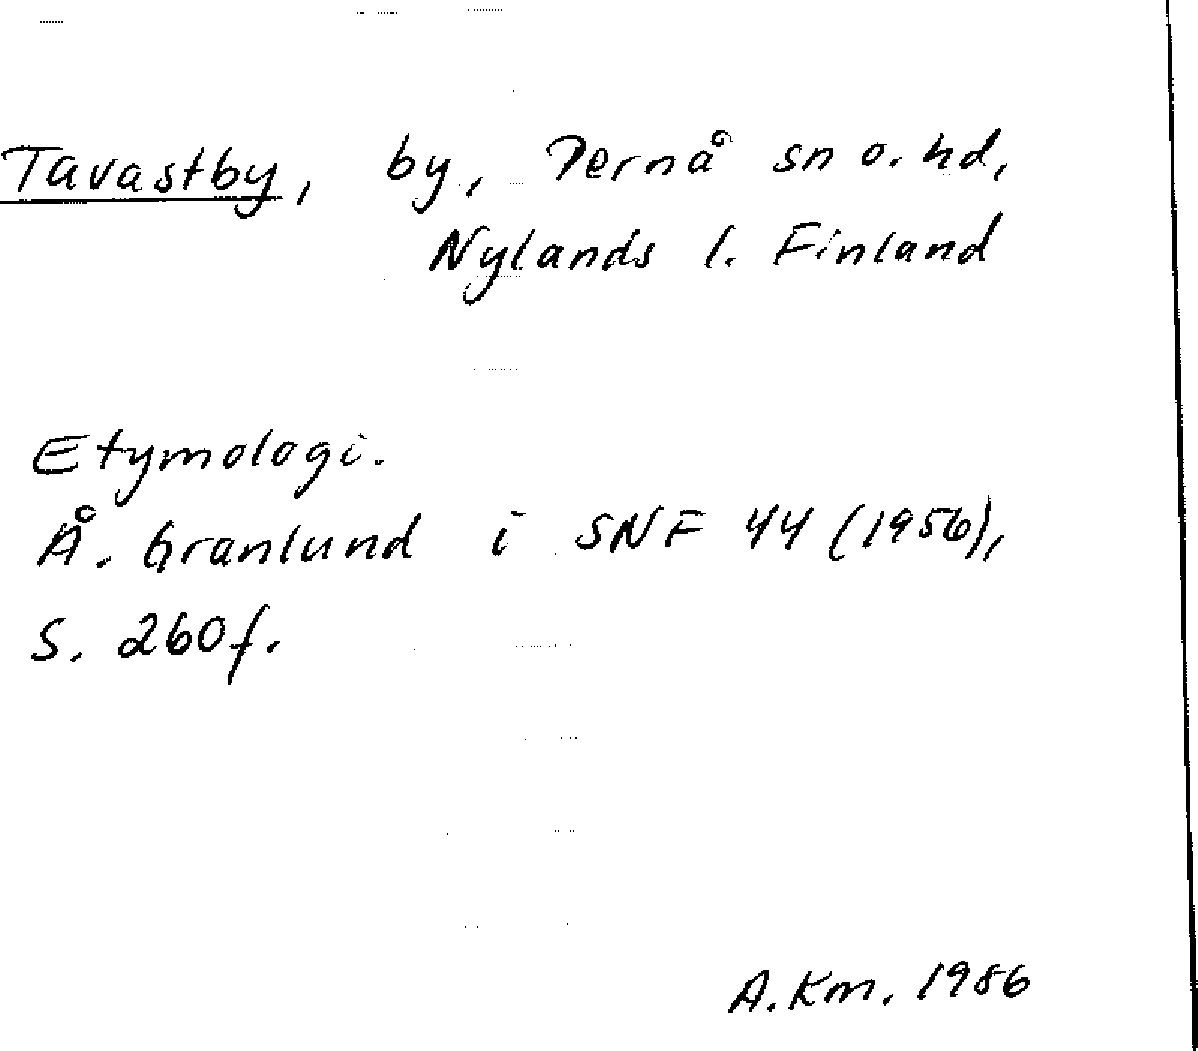 Tavastby, by, Pernå sn o. hd,
Nylands l. Finland
Etymologi.
Å. Granlund i SNF 44 (1956),
S. 260f.
A.Km. 1986